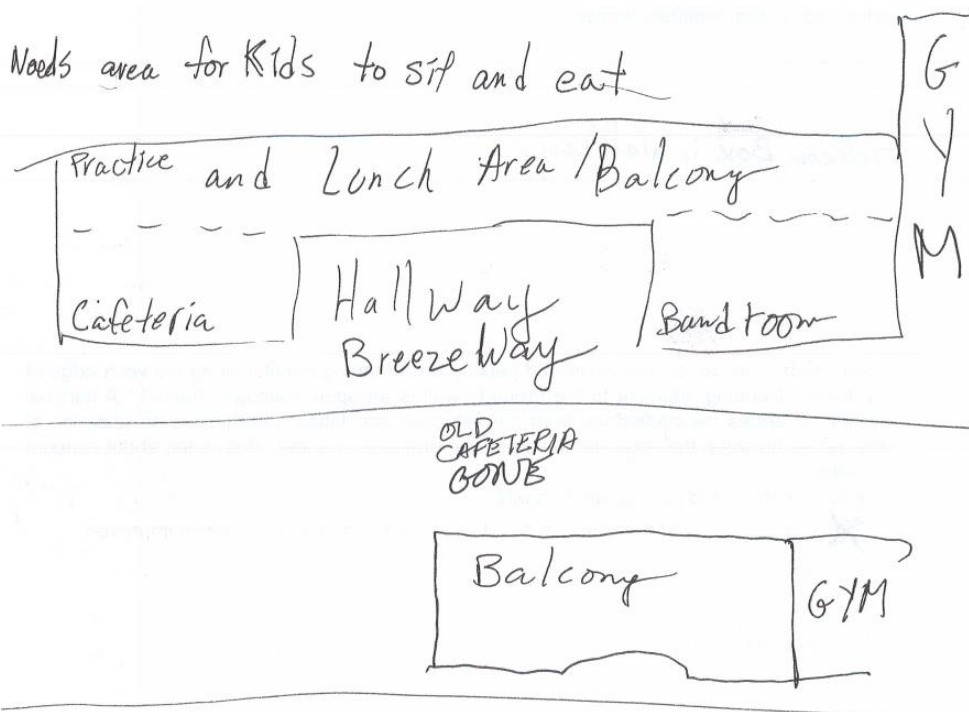 Needs area for Kids to sit and eat
GYM
Practice and Lunch Area / Balcony
Cafeteria
Hallway
Breezeway
Band room
OLD
CAFETERIA
GONE
Balcony
GYM